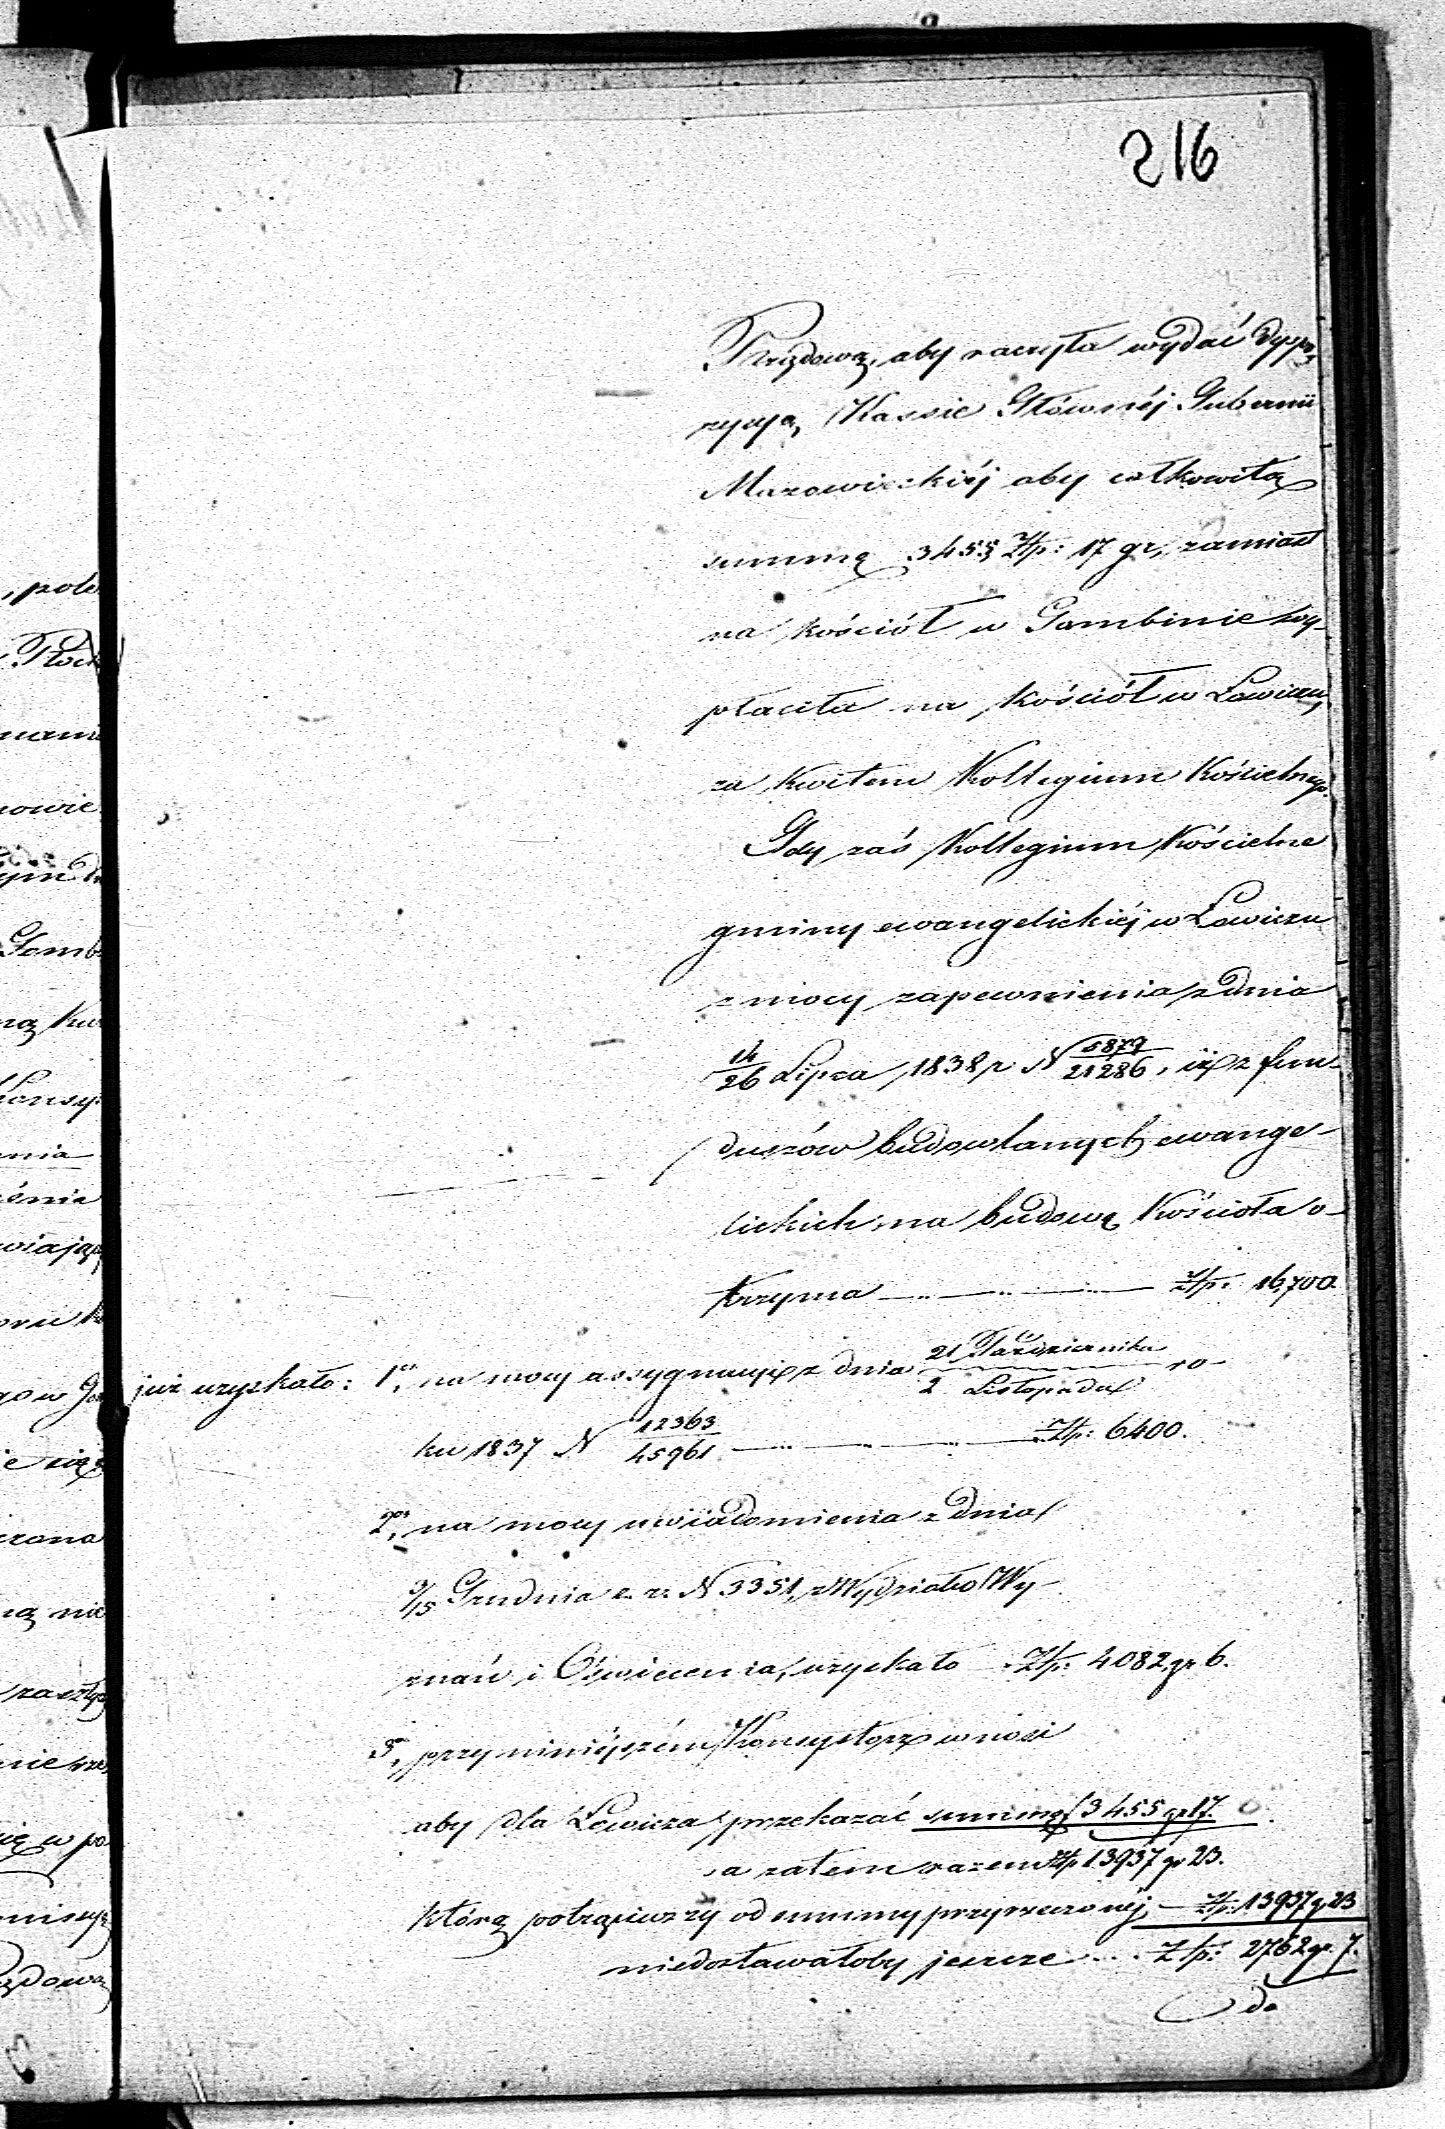 216
Rządową, aby raczyła wydać dyspo-
zycyą, Kassie Głównéj Gubernii
Mazowieckiéj aby całkowitą
summę 3455 Złp: 17 gr, zamiast
na kościół w Gombinie wy-
płaciła na kościół w Łowiczu,
za kwitem Kollegium Kościelnego.
Gdy zaś Kollegium Kościelne
gminy ewangelickiéj w Łowiczu
z mocy zapewnienia z dnia
14/26 Lipca 1838 r N 5877/21286, iż z fun-
duszów budowlanych ewange-
lickich na budowę Kościoła o-
trzyma Złp: 16,700.
już uzyskało: 1o, na mocy assygnacyi z dnia 21 Października/2 Listopada ro-
ku 1837 N 12363/45961 Złp: 6400.
2o, na mocy uwiadomienia z dnia
3/15 Grudnia z. r. N 3351, z Wydziału Wy-
znań i Oświecenia, uzyskało Złp: 4082 gr 6.
3o, przy niniéjszém Konsystorz wnosi
aby dla Łowicza przekazać summę 3455 gr 17.
a zatem razem Złp 13937 gr 23.
którą potrąciwszy od summy przyrzeczonéj, Złp: 13937 g 23
niedostawałoby jeszcze Złp: 2762 gr. 7.
do
, pole
Płock
Gomb